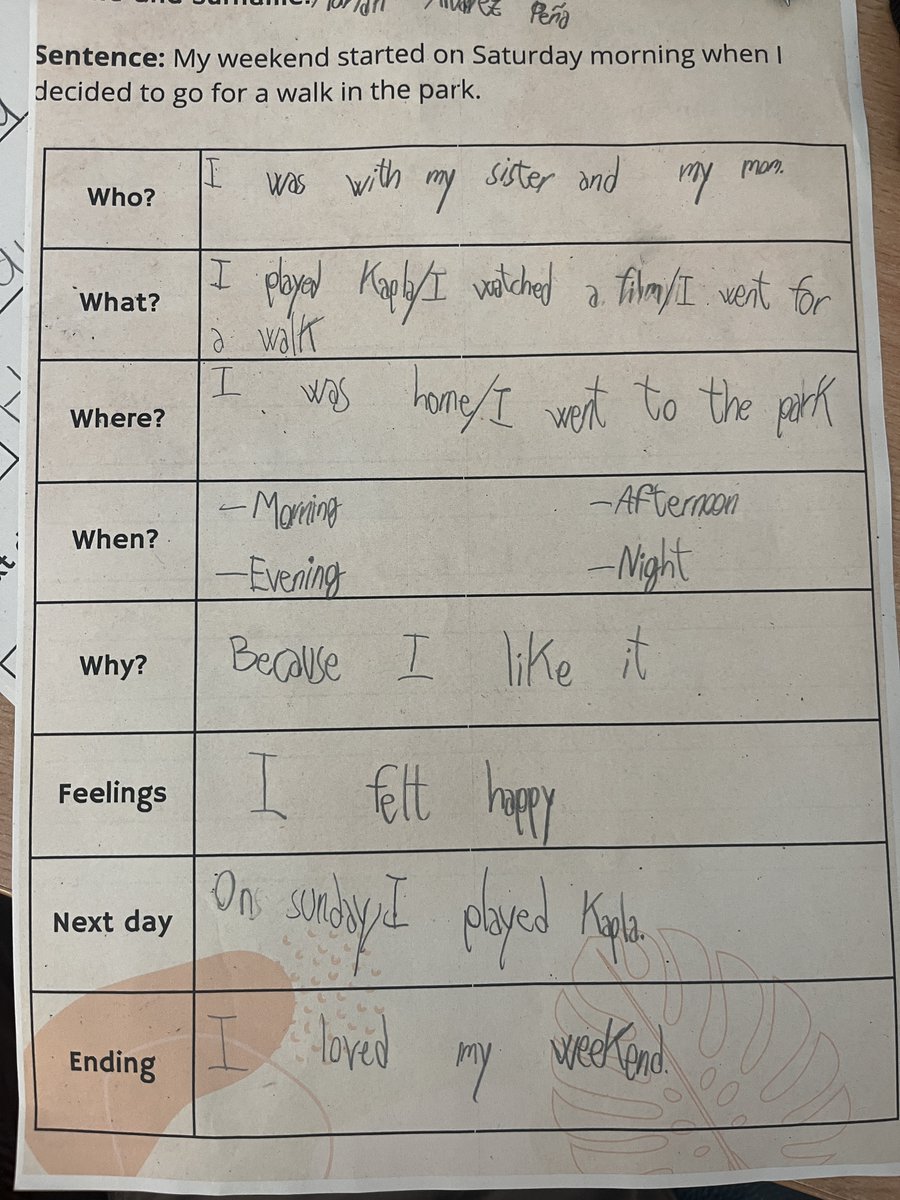 Peña
Sentence: My weekend started on Saturday morning when I
decided to go for a walk in the park.
Who? I was with my sister and my mom.
What? I played Kapla/I watched a film/I went for
a walk
Where? I was home/I went to the park
When? -Morning -Afternoon
-Evening -Night
Why? Because I like it
Feelings I felt happy
Next day On sunday, I played Kapla.
Ending I loved my weekend.